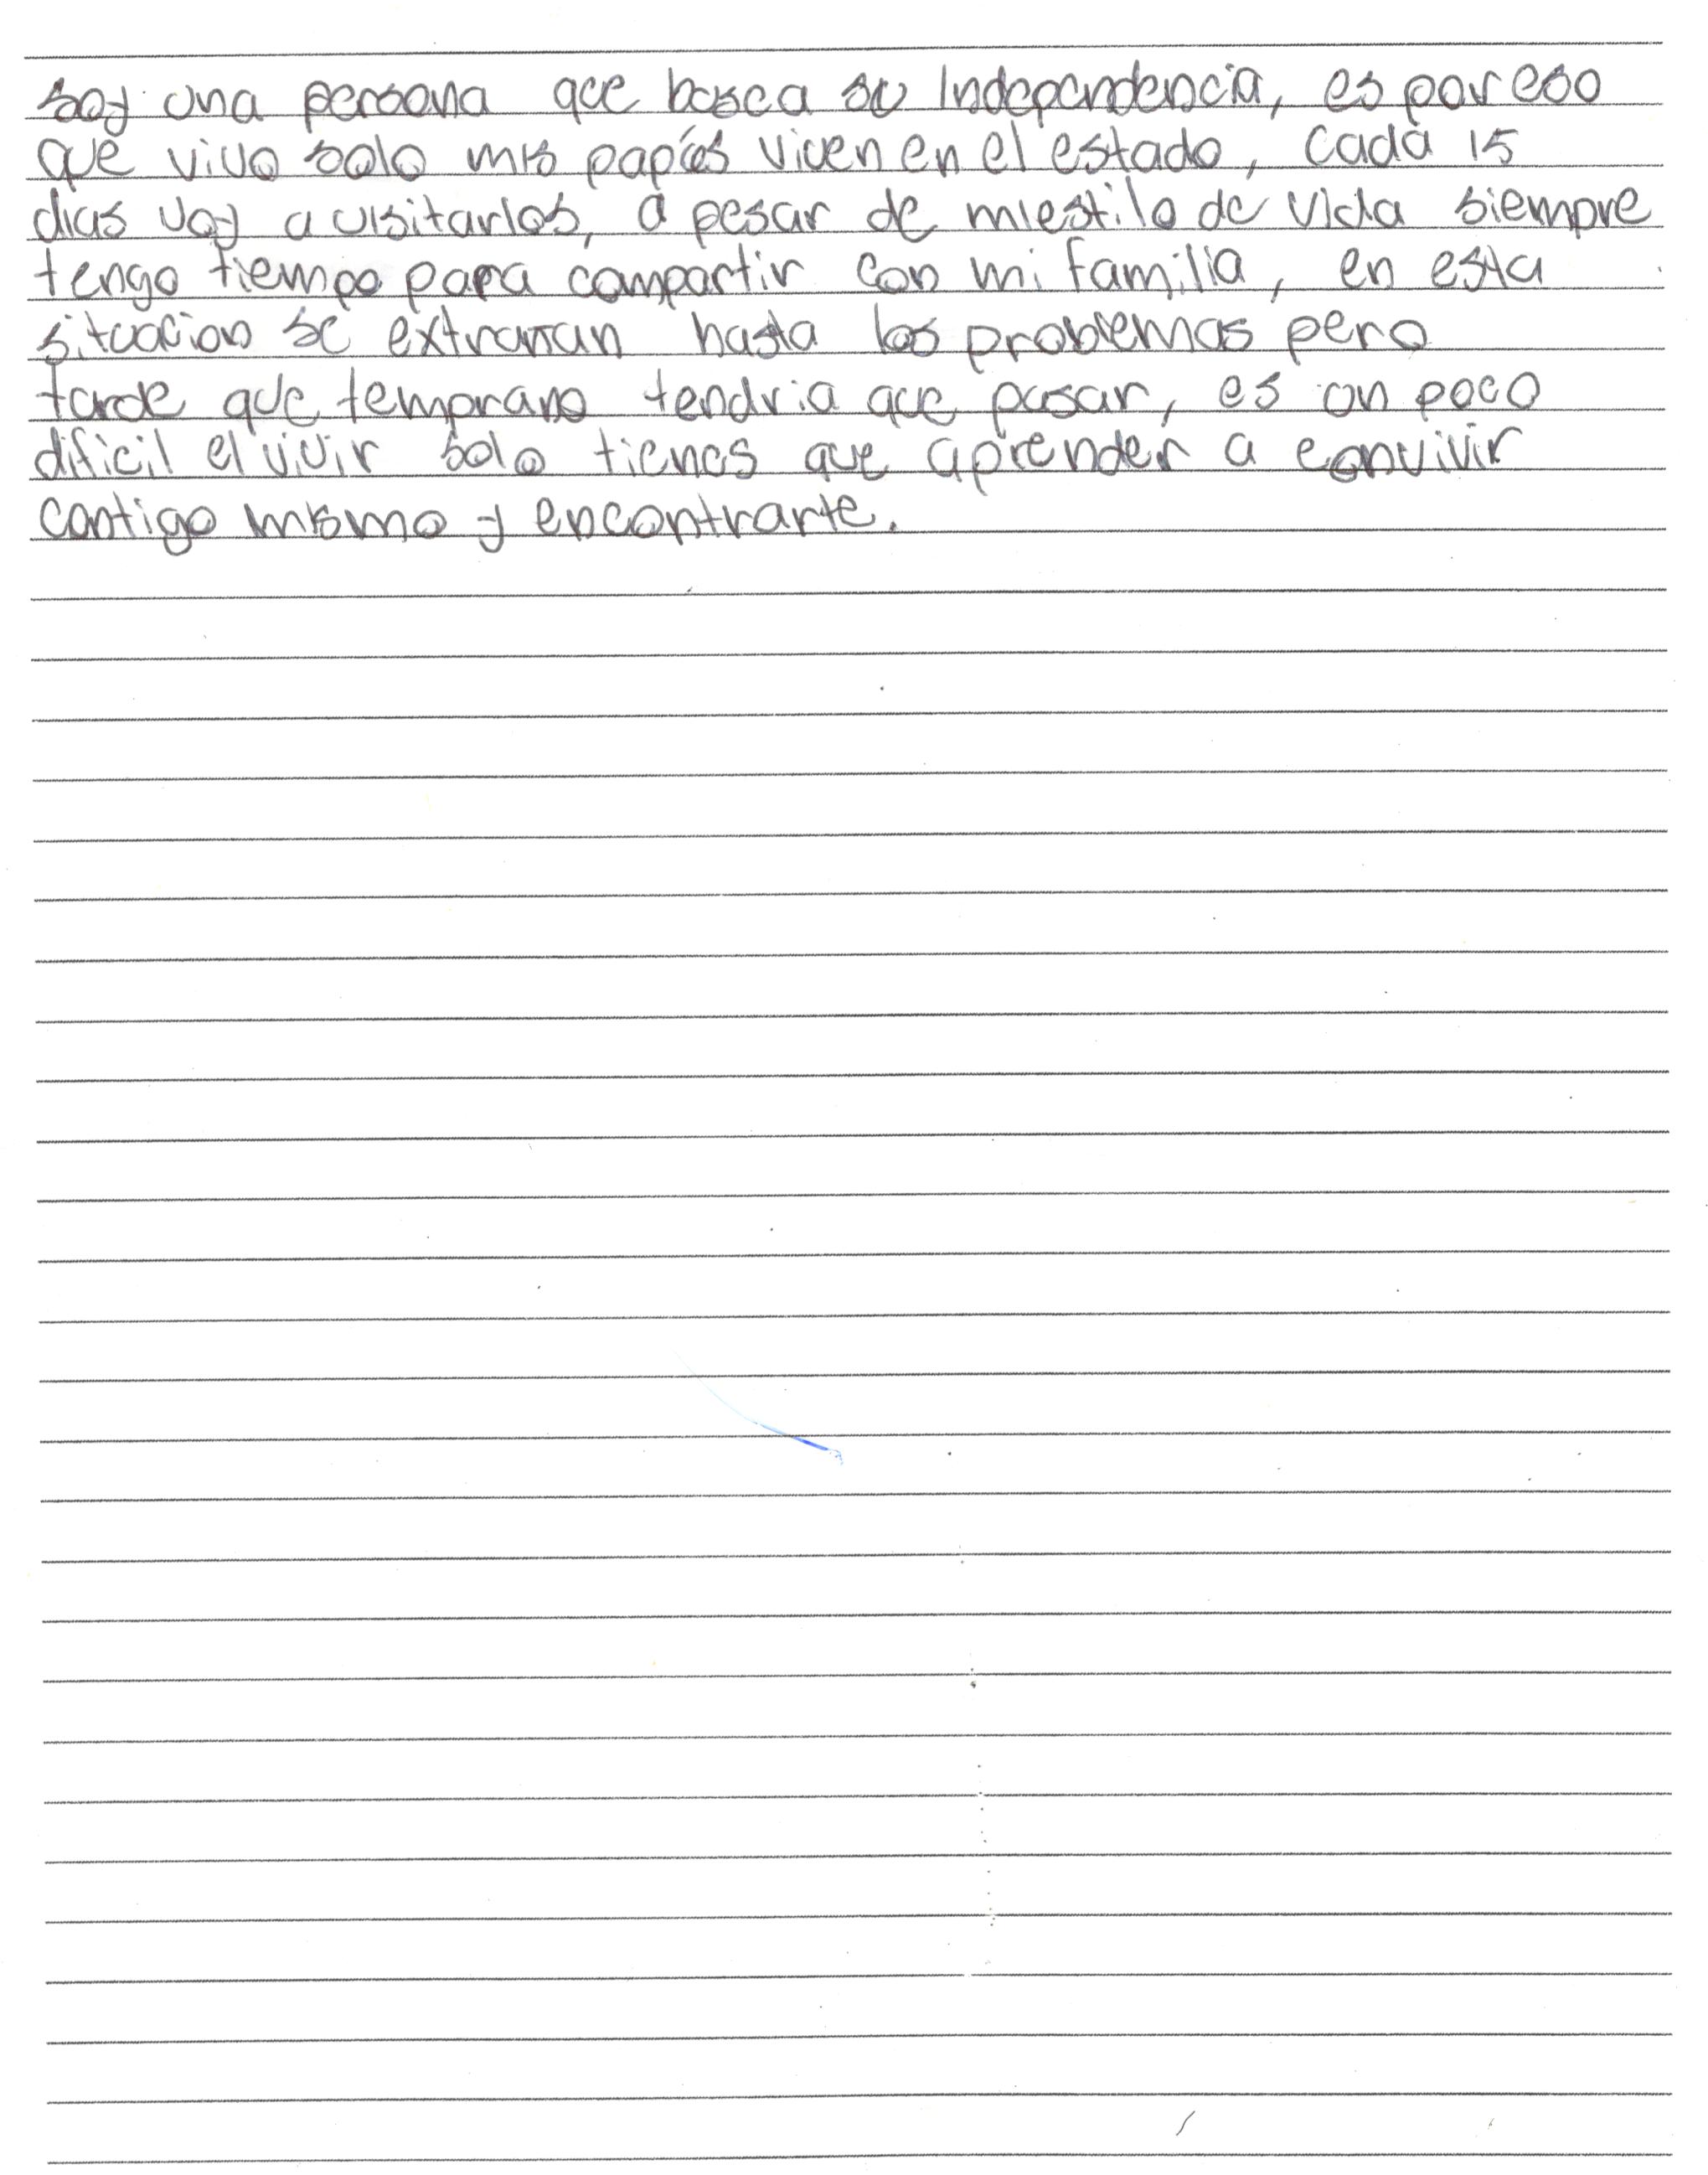 soy una persona que busca su Independencia, es por eso
que vivo solo mis papás viven en el estado, cada 15
dias voy a visitarlos, a pesar de mi estilo de vida siempre
tengo tiempo para compartir con mi familia, en esta
situacion se extrañan hasta los problemas pero
tarde que temprano tendria que pasar, es un poco
dificil el vivir solo tienes que aprender a convivir
contigo mismo y encontrarte.